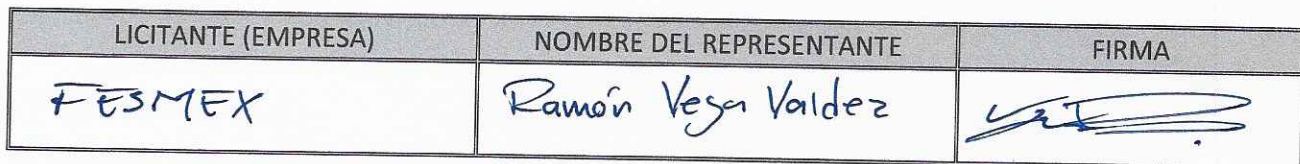 LICITANTE (EMPRESA) NOMBRE DEL REPRESENTANTE FIRMA
FESMEX Ramón Vega Valdez